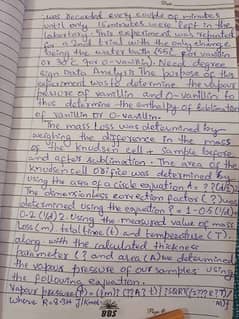 was recorded every couple of minutes
until only 15 minutes were left in the
laboratory. This experiment was repeated
for a 2nd trial with the only change
being the water bath (55° for vanillin
or 30°C for o-vanillin). Need degree
sign Data Analysis The purpose of this
experiment was to determine the vapour
pressure of vanillin and o-vanillin, to
thus determine the enthalpy of sublimation
of vanillin or o-vanillin.
The mass loss was determined by
weighing the difference in the mass
of the Knudsen cell + sample before
and after sublimation. The area of the
Knudsen cell orifice was determined by
using the area of a circle equation A= ?(d/2)2
The dimensionless correction factor (?) was
determined using the equation ? = 1-0.5(l/d)+
0.2(l/d)2. Using the measured value of mass
loss(m), total time(t) and temperature (T)
along with the calculated thickness
parameter (?) and area(A) we determined
the vapour pressure of our samples using
the following equation.
Vapour pressure(P) =
where R=8.314 J/Kmol